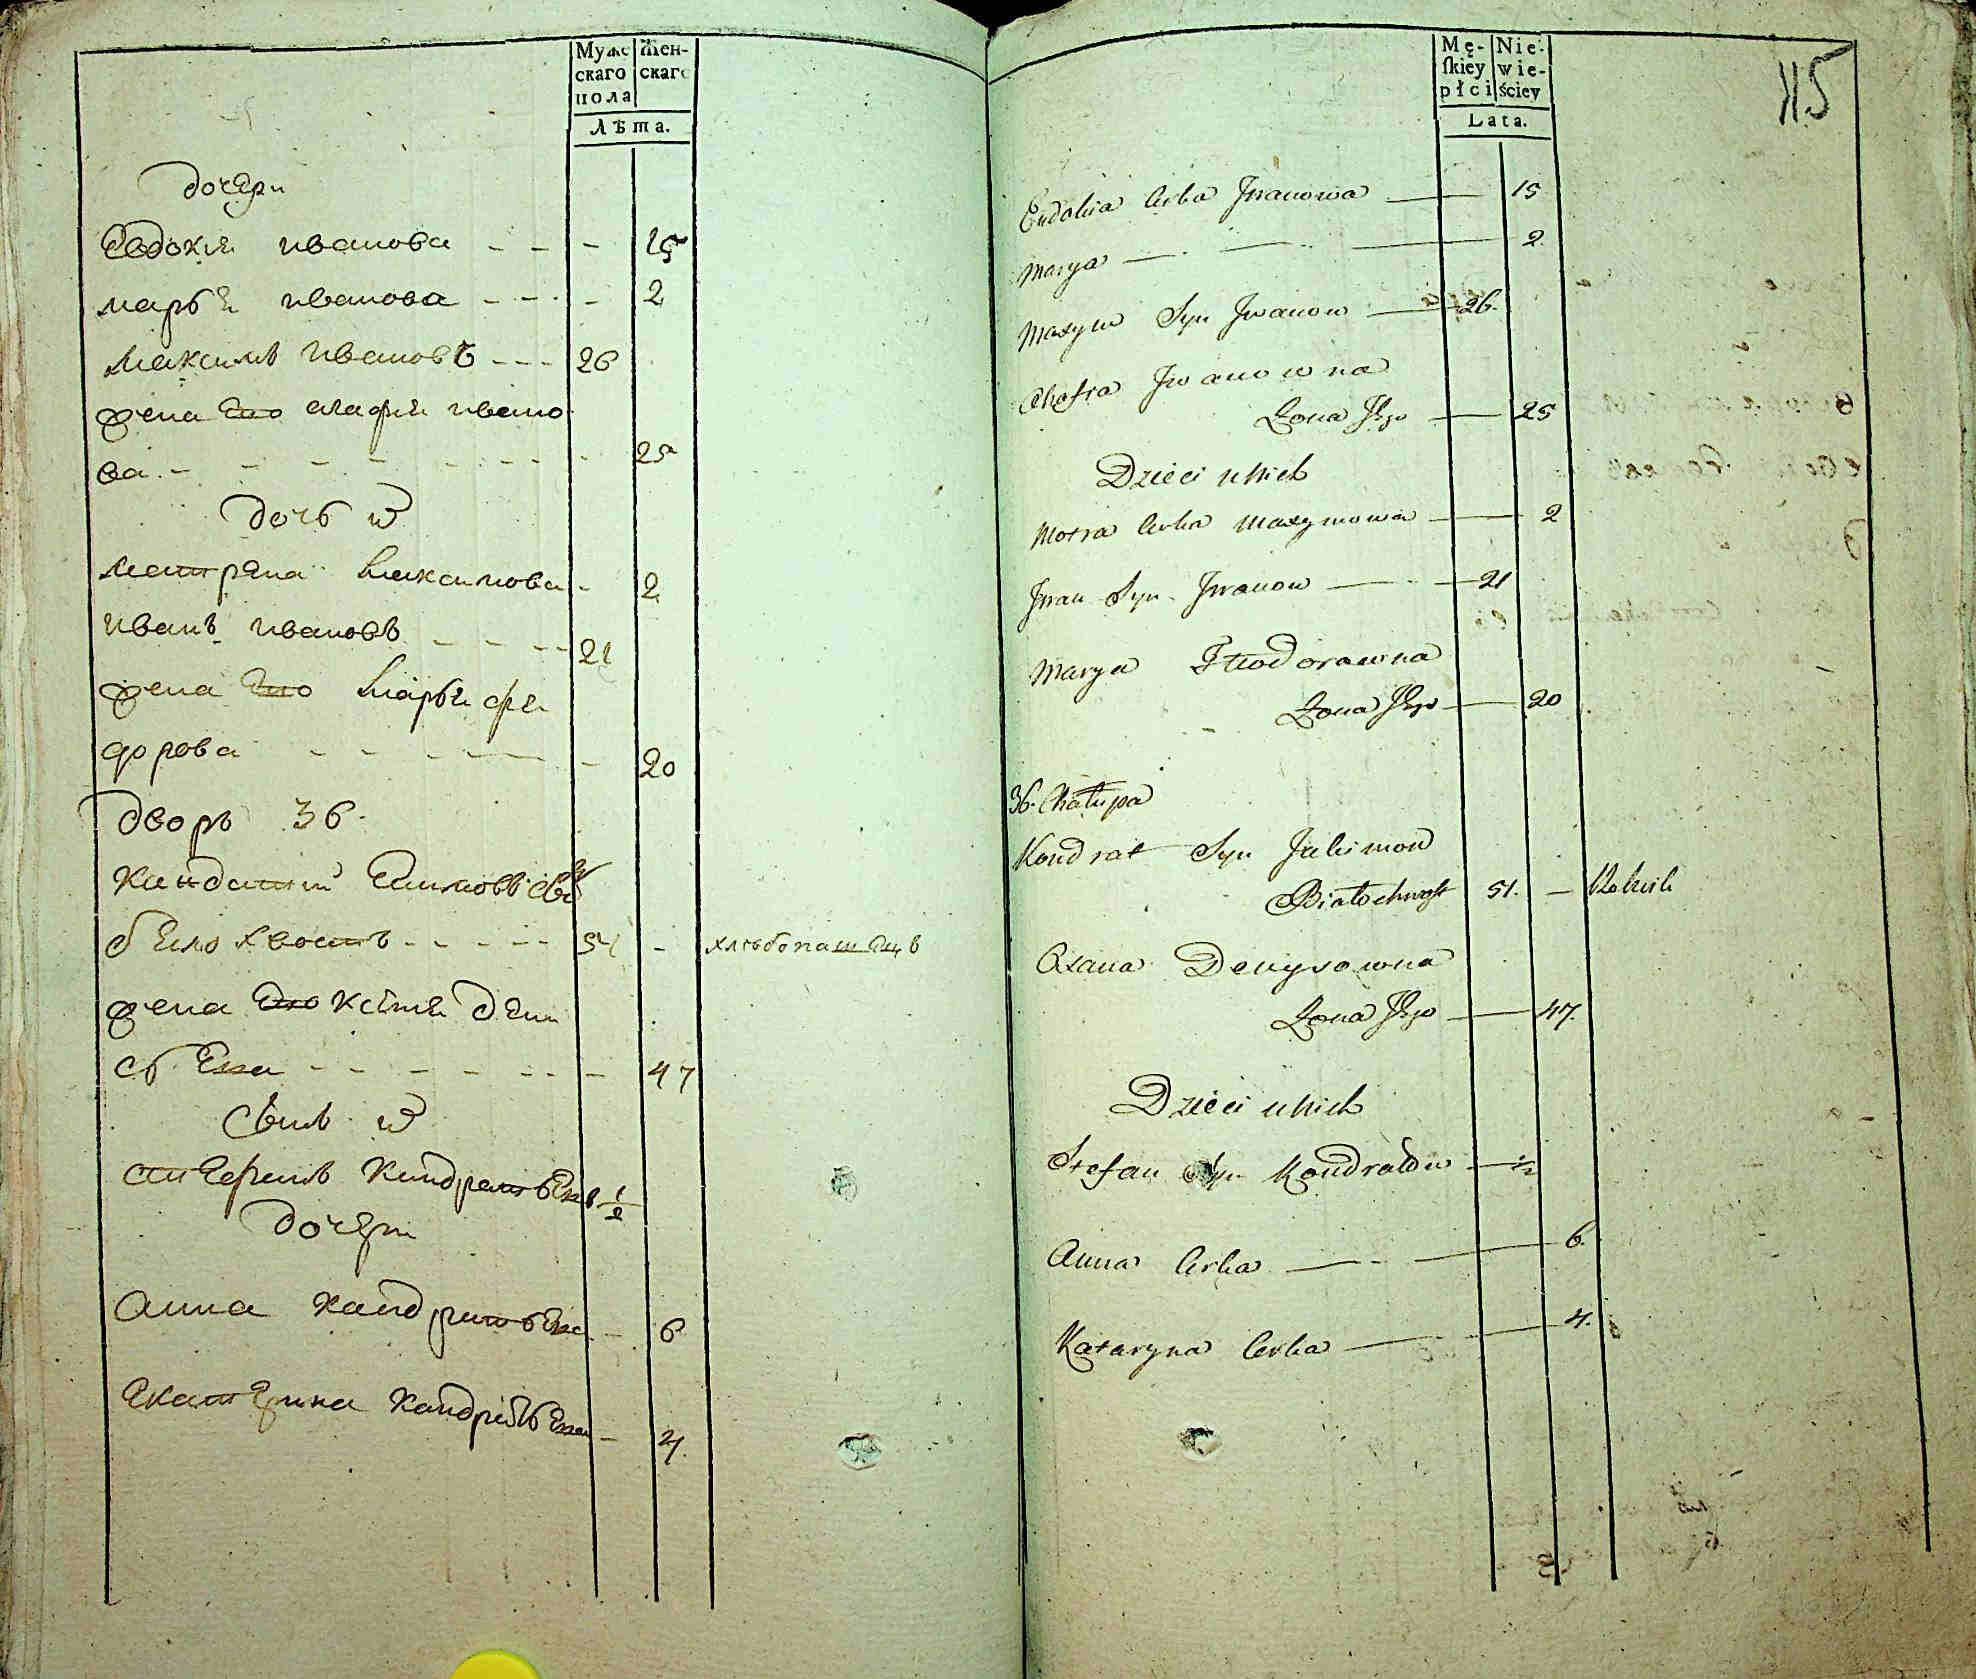 Мужс
скаго
пола
Жен-
скаго
Лѣта.
дочери
Евдокия иванова - - - 15
марья иванова - - - - 2
Максимъ Ивановъ - - - 26
жена Его агафия ивано
ва - - - - - - - - 25
дочь их
Матрена Максимова - 2
иванъ ивановъ - - - - 21
жена Его Марья фе
дорова - - - - - - 20
дворъ 36.
Кандратий Екимовъ Сынъ
белохвостъ - - - - - 51 - хлебопашецъ
жена Его Ксения дени
сьева - - - - - - - 47
Сынъ их
Степанъ Кандратьевъ 1/2
дочери
Анна Кандратьева - - 6
Екатерина Кандратьева - 4.
Mę-
skiey
płci
Nie-
wie-
ściey
Lata.
115
Eudokia Cwka Jwanowa — — 15
Marya — — — 2
Maxym Syn Jwanow — 26.
Ahafia Jwanowna
Żona Jego — 25
Dzieci u Nich
Motra Curka Maxymowa — 2
Jwan Syn Jwanow — 21
Marya Fteodorawna
Żona Jego — 20
36. Chałupa
Kondrat Syn Jakimow
Białochwost 51. — Rolnik
Oxana Denysowna
Żona Jego — 47.
Dzieci u Nich
Stefan Syn Kondratow — 1/2
Anna Curka — — 6.
Kataryna Curka — 4.